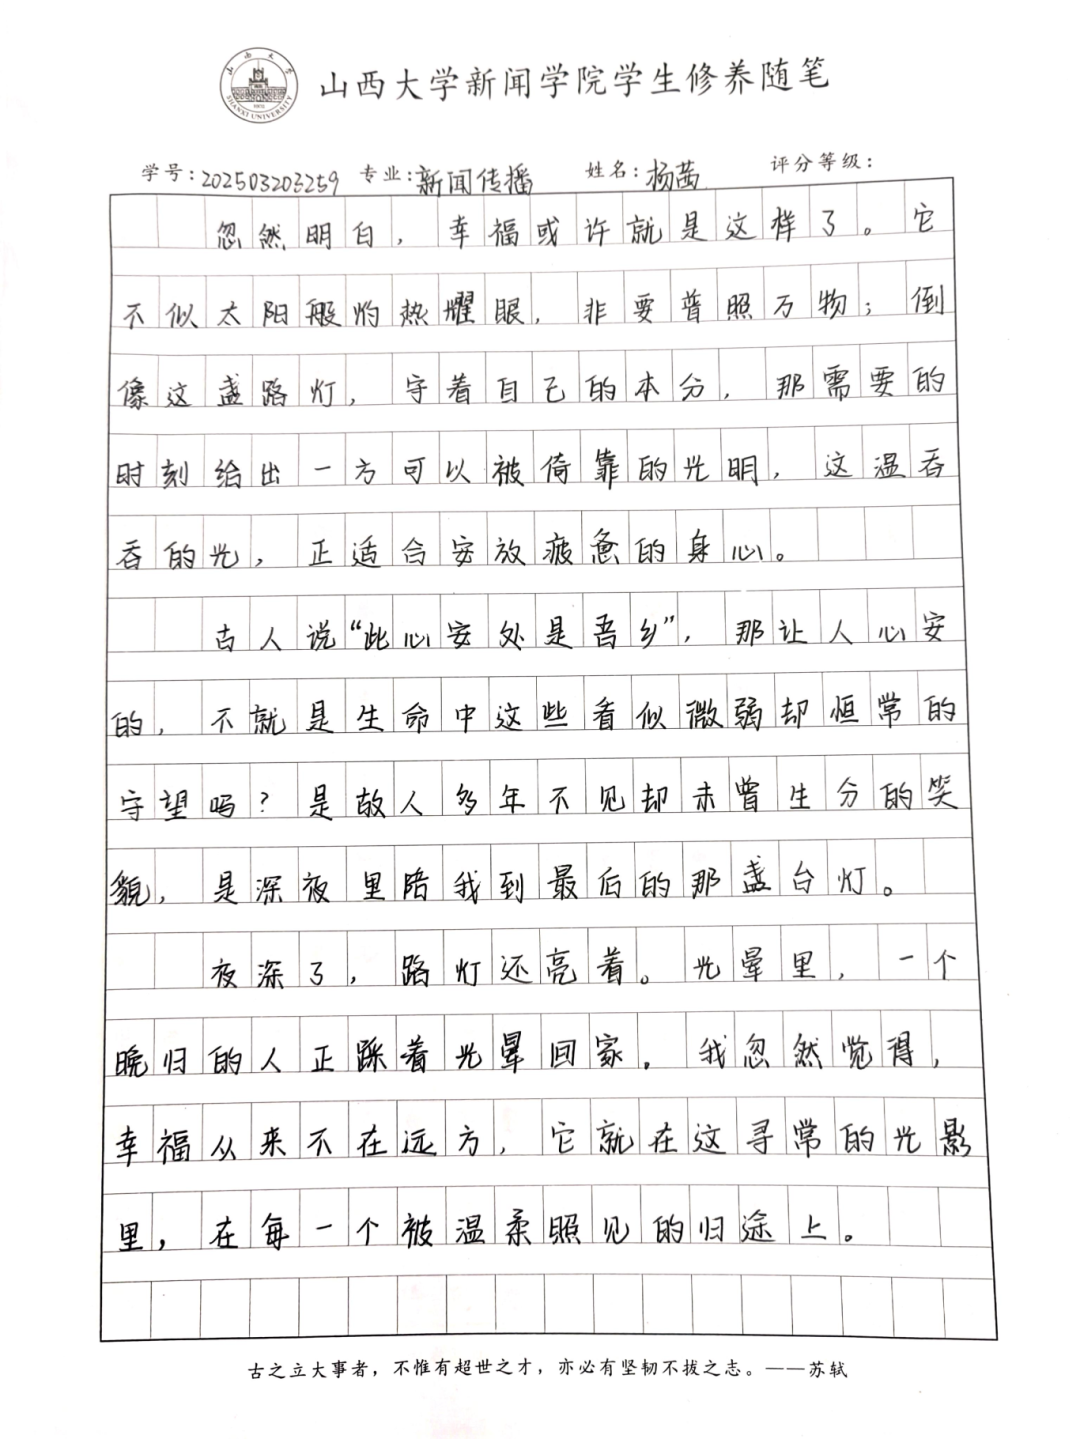 山西大学
SHANXI UNIVERSITY
1902
山西大学新闻学院学生修养随笔
学号:202503203259 专业:新闻传播 姓名:杨茜 评分等级:
忽然明白，幸福或许就是这样了。它
不似太阳般灼热耀眼，非要普照万物；倒
像这盏路灯，守着自己的本分，那需要的
时刻给出一方可以被倚靠的光明，这温吞
吞的光，正适合安放疲惫的身心。
古人说“此心安处是吾乡”，那让人心安
的，不就是生命中这些看似微弱却恒常的
守望吗？是故人多年不见却未曾生分的笑
貌，是深夜里陪我到最后的那盏台灯。
夜深了，路灯还亮着。光晕里，一个
晚归的人正踩着光晕回家。我忽然觉得，
幸福从来不在远方，它就在这寻常的光影
里，在每一个被温柔照见的归途上。
古之立大事者，不惟有超世之才，亦必有坚韧不拔之志。——苏轼